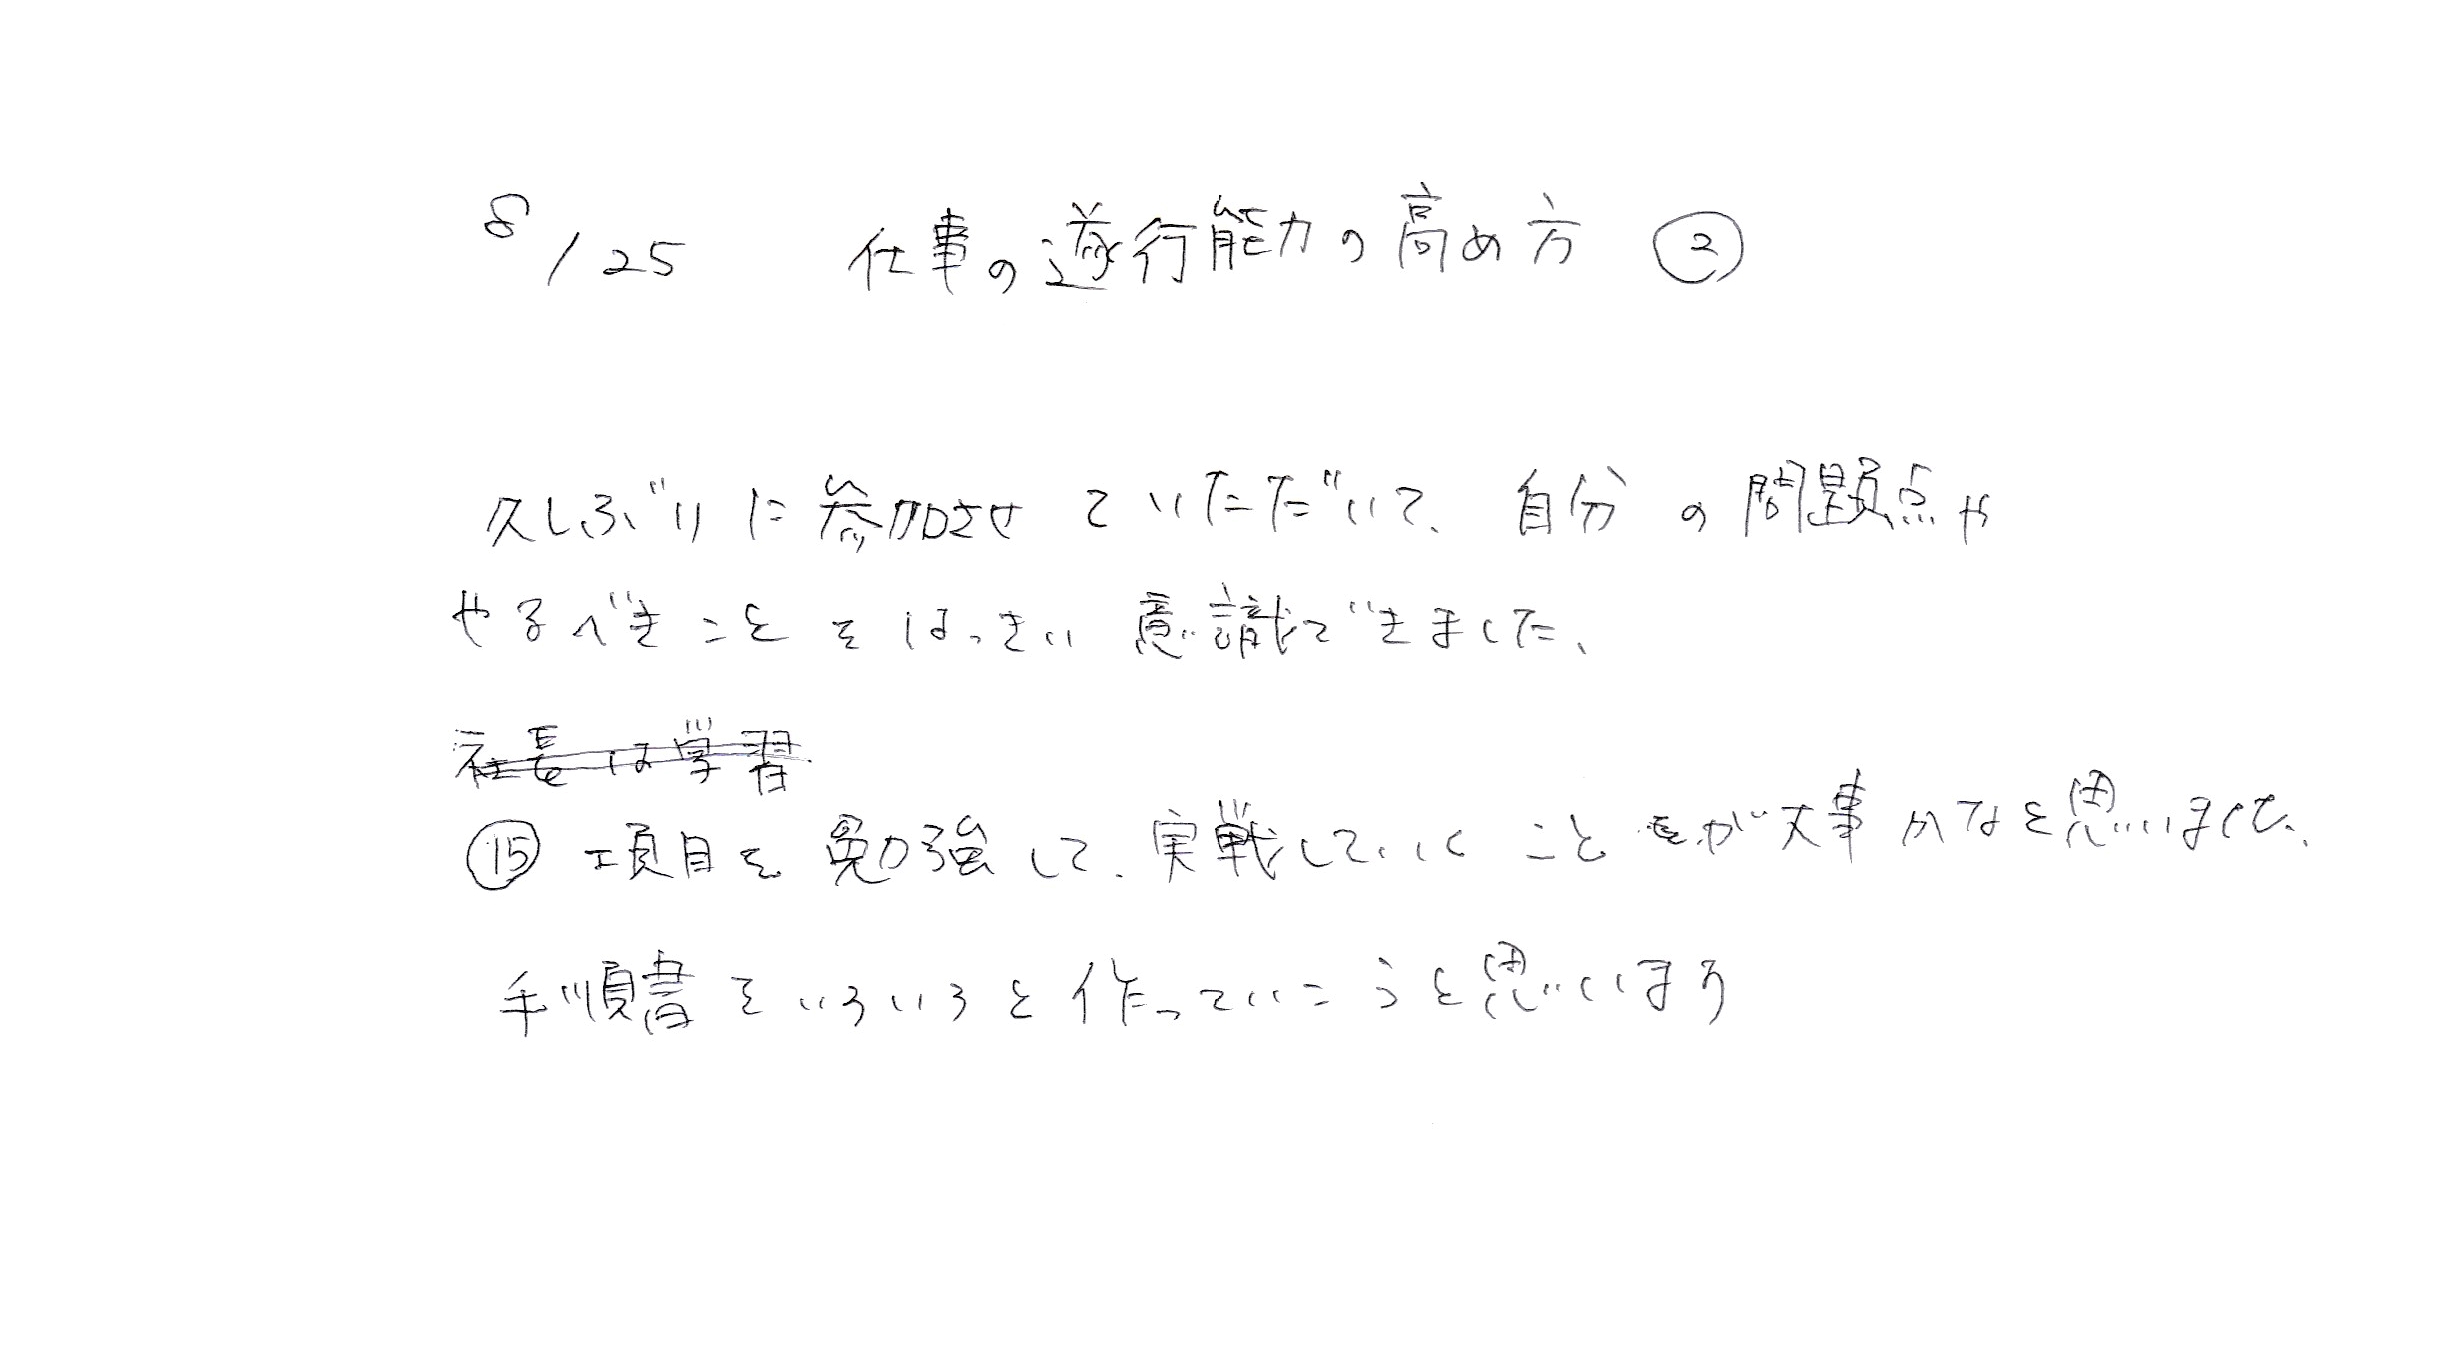 8/25 仕事の遂行能力の高め方 ②
久しぶりに参加させていただいて、自分の問題点や
やるべきことをはっきり意識できました、
社長は学習
⑮ 項目を勉強して、実戦していくことが大事かなと思いました、
手順書をいろいろと作っていこうと思います